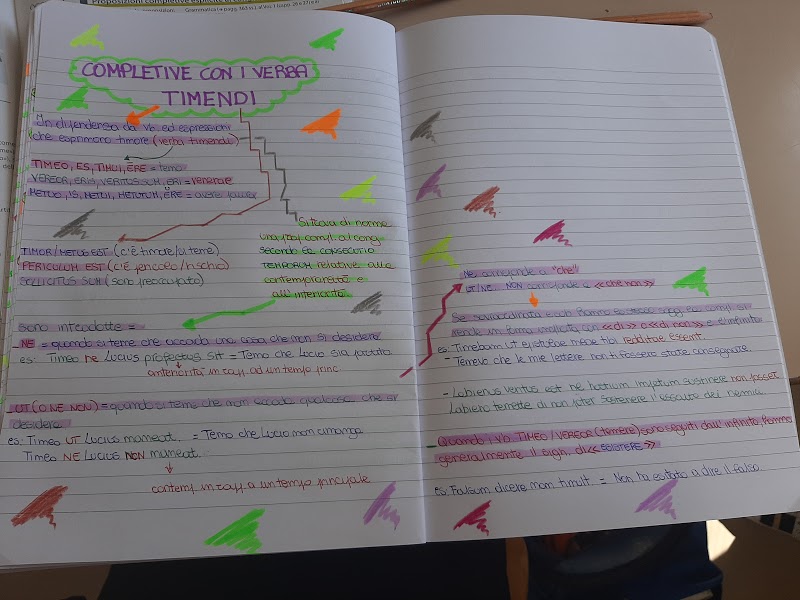 Proposizioni completive esplicite
COMPLETIVE CON I VERBA
TIMENDI
In dipendenza da vb ed espressioni
che esprimono timore (verba timendi)
TIMEO, ES, TIMUI, ERE = temo
VEREOR, ERIS, VERITUS SUM, ERI = venerare
METUO, IS, METUI, METUTUM, ERE = avere paura
Si trova di norma
una prop compl. al cong.
secondo la CONSECUTIO
TEMPORUM relative alla
contemporaneità e
all'anteriorità
TIMOR/METUS EST (c'è timore/si teme)
PERICULUM EST (c'è pericolo/rischio)
SOLLICITUS SUM (sono preoccupato)
Sono introdotte =
NE = quando si teme che accada una cosa che non si desidera
es: Timeo ne Lucius profectus sit = Temo che Lucio sia partito
anteriorità in rapp. ad un tempo princ.
UT (O NE NON) = quando si teme che non accada qualcosa che si
desidera
es: Timeo UT Lucius maneat. = Temo che Lucio non rimanga
Timeo NE Lucius NON maneat.
contemp. in rapp. a un tempo principale
Ne corrisponde a "che"
UT/NE NON corrisponde a << che non >>
Se sovraordinata e sub hanno lo stesso sogg. la compl. si
rende in forma implicita con <<di>> o <<di non>> e l'infinito
es: Timebam ut epistulae meae tibi redditae essent.
- Temevo che le mie lettere non ti fossero state consegnate.
- Labienus veritus est ne hostium impetum sustinere non posset.
Labieno temette di non poter sostenere l'assalto dei nemici.
Quando i vb TIMEO/VEREOR (temere) sono seguiti dall'infinito hanno
generalmente il sign. di << ESITARE >>
es: Falsum dicere non timuit. = Non ha esitato a dire il falso